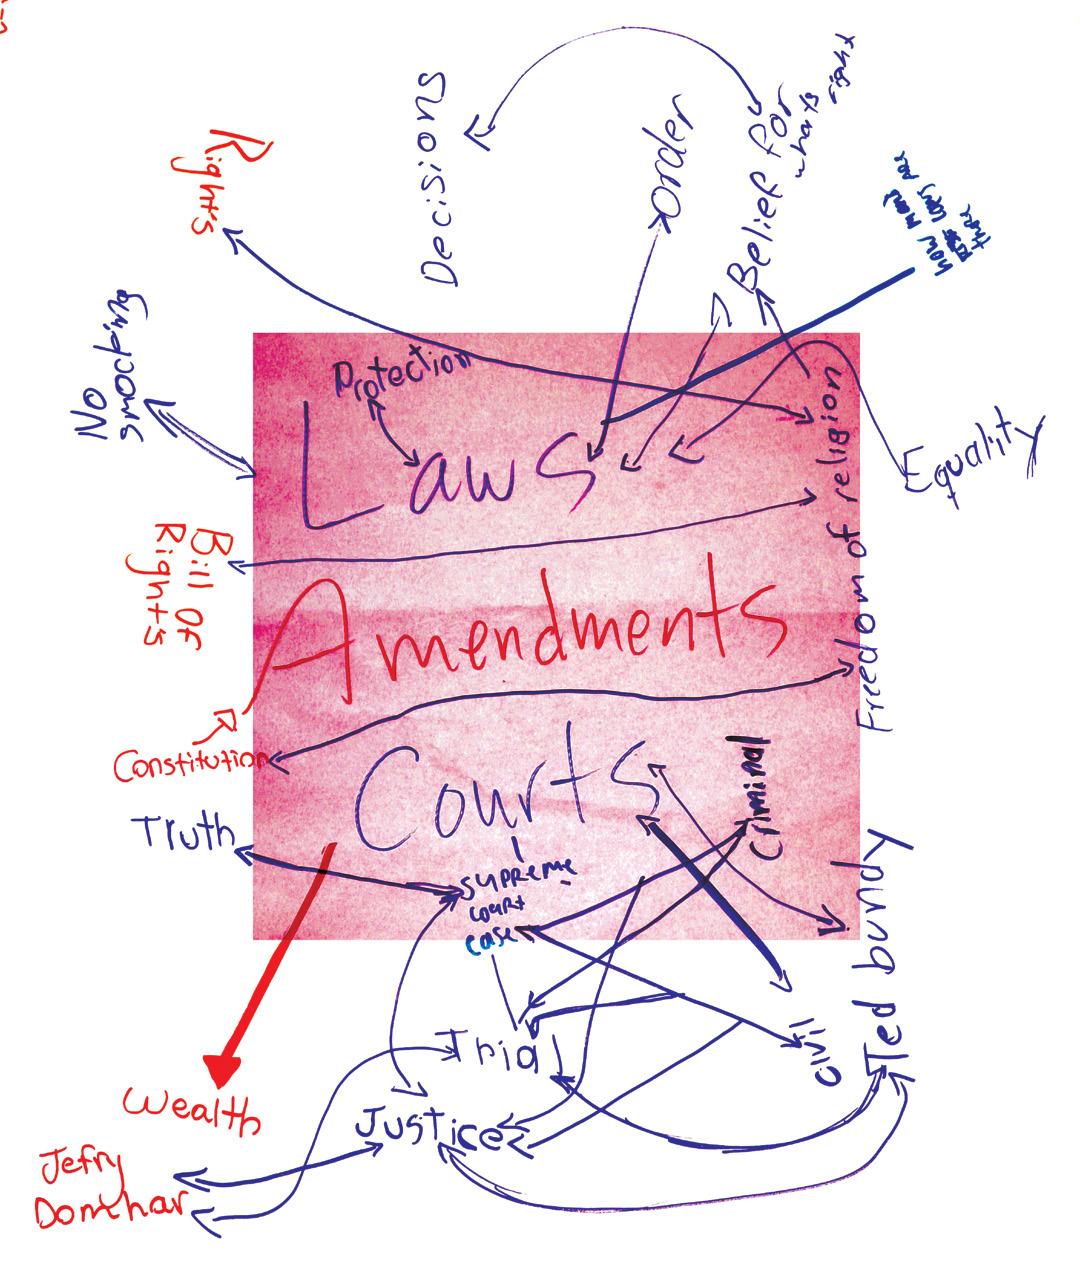 Decisions
order
Belief for
what's right
Rights
No
smocking
Protection
Laws
Equality
Freedom of religion
Bill of
Rights
Amendments
Constitution
Courts
Criminal
Truth
supreme
court
case
Ted bundy
civil
Trial
Justice
Wealth
Jefry
Domhar